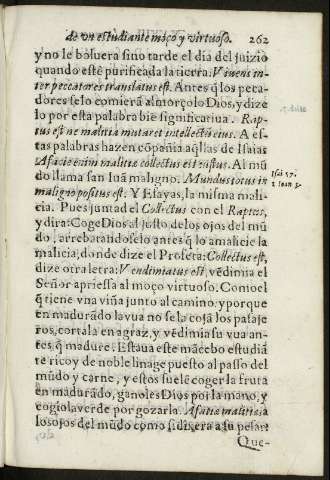 de vn estudiante moço y virtuoso. 262
y no le boluera sino tarde el dia del juizio
quando estè purificada la tierra. Viuens in-
ter peccatores translatus est. Antes q̃ los peca-
dores se lo comierã almorçolo Dios, y dize
lo por esta palabra biẽ significatiua. Rap-
tus est ne malitia mutaret intellectũ eius. A es-
tas palabras hazen cõpañia aq̃llas de Isaias
A facie enim malitiæ collectus est iustus. Al mũ
do llama san Iuã maligno. Mundus totus in
maligno positus est. Y Esayas, la misma mali-
cia. Pues juntad el Collectus con el Raptus,
y dira: Coge Dios al justo de los ojos del mũ
do, arrebatandoselo antes q̃ lo amalicie la
malicia, donde dize el Profeta: Collectus est,
dize otra letra: Vendimiatus est, vẽdimia el
Señor apriessa al moço virtuoso. Como el
q̃ tiene vna viña junto al camino: y porque
en madurãdo la vua no se la cojã los pasaje
ros, cortala en agraz, y vẽdimia su vua an-
tes q̃ madure. Estaua este mãcebo estudiã
te rico y de noble linage puesto al passo del
mũdo y carne, y estos suelẽ coger la fruta
en madurãdo, ganoles Dios por la mano, y
cogiola verde por gozarla. A facie malitiæ, a
los ojos del mũdo como si dixera a su pesar:
Que-
Isai. 57.
1. Ioan. 5.